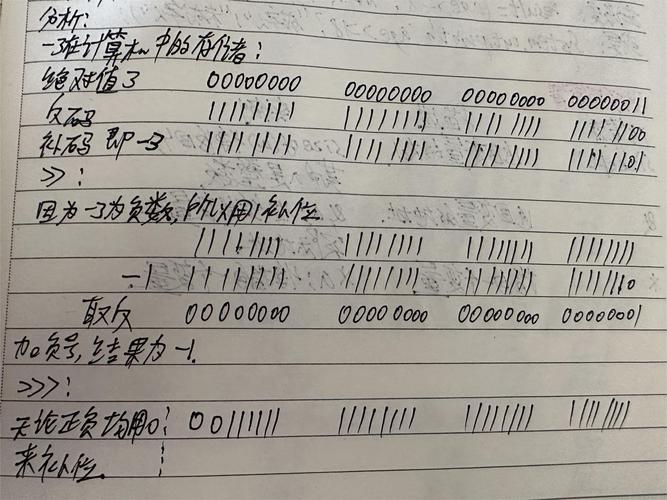 分析:
-3在计算机中的存储:
绝对值3 00000000 00000000 00000000 00000011
反码 11111111 11111111 11111111 11111100
补码 即-3 11111111 11111111 11111111 11111101
>>:
因为-3为负数,所以用1补位
11111111 11111111 11111111 11111111
-1 11111111 11111111 11111111 11111110
取反 00000000 00000000 00000000 00000001
加负号,结果为-1.
>>>:
无论正负均用0 00111111 11111111 11111111 11111111
来补位.